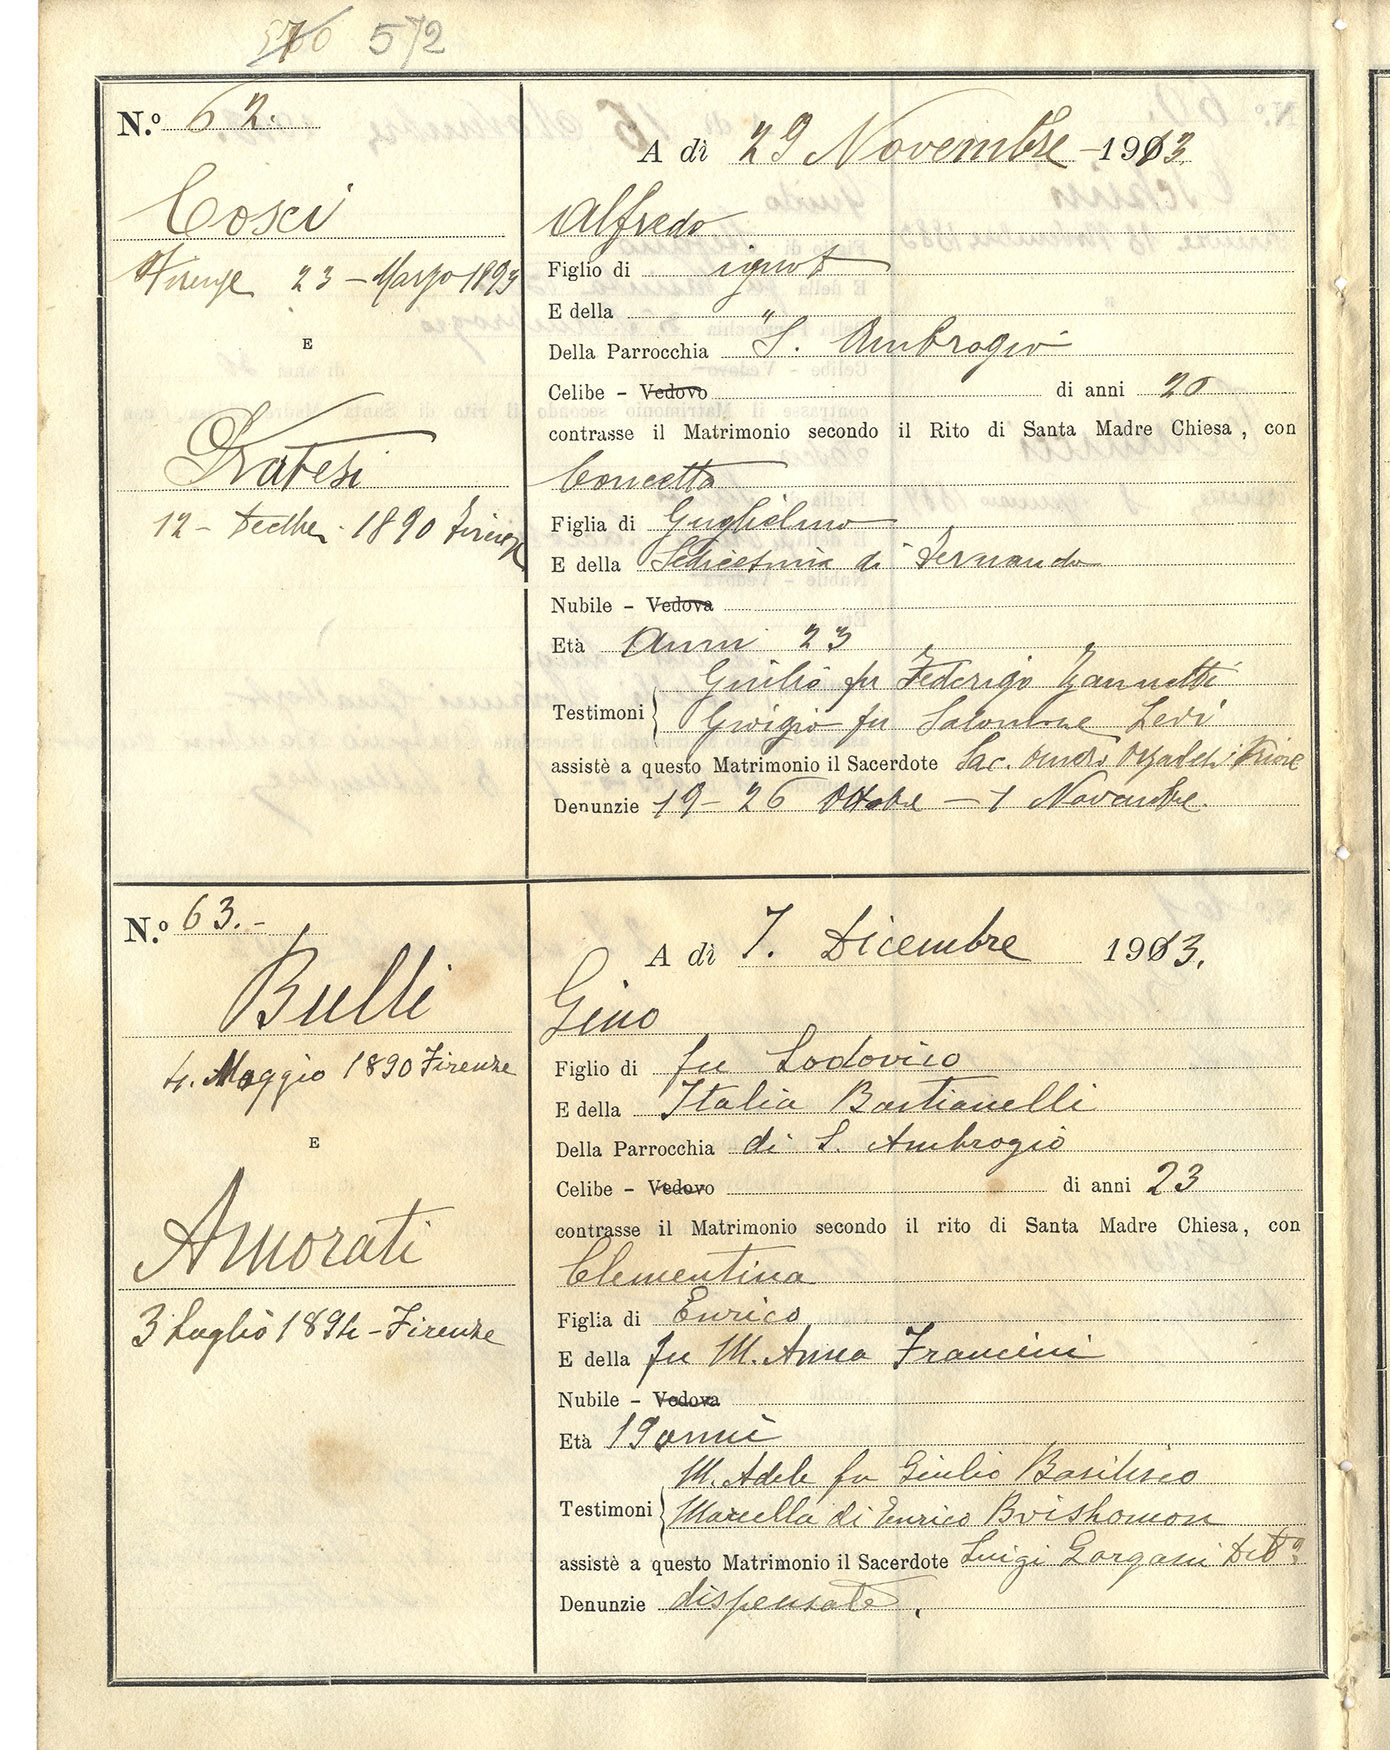 572
N.º 62.
A dì 29 Novembre 1913
Cosci
Alfredo
Firenze 23 - Marzo 1893
Figlio di ignoti
E della "
E
Della Parrocchia S. Ambrogio
Celibe - Vedovo di anni 20
contrasse il Matrimonio secondo il Rito di Santa Madre Chiesa, con
Pratesi
Concetta
12 - 1890 Firenze
Figlia di Guglielmo
E della di Fernando
Nubile - Vedova
Età Anni 23
Testimoni Giulio fu Federigo Zannetti
Giorgio fu Salomone Levi
assistè a questo Matrimonio il Sacerdote Sac. Priore
Denunzie 19 - 26 Ottobre - 1 Novembre.
N.º 63.-
A dì 7. Dicembre 1913.
Bulli
Gino
4. Maggio 1890 Firenze
Figlio di fu Lodovico
E della Italia Bastianelli
E
Della Parrocchia di S. Ambrogio
Celibe - Vedovo di anni 23
contrasse il Matrimonio secondo il rito di Santa Madre Chiesa, con
Amorati
Clementina
3 Luglio 1894 - Firenze
Figlia di Enrico
E della fu M. Anna Francini
Nubile - Vedova
Età 19 anni
Testimoni M. Adele fu Giulio Basilisco
Marcella di Enrico
assistè a questo Matrimonio il Sacerdote Luigi Gargani
Denunzie dispensate.